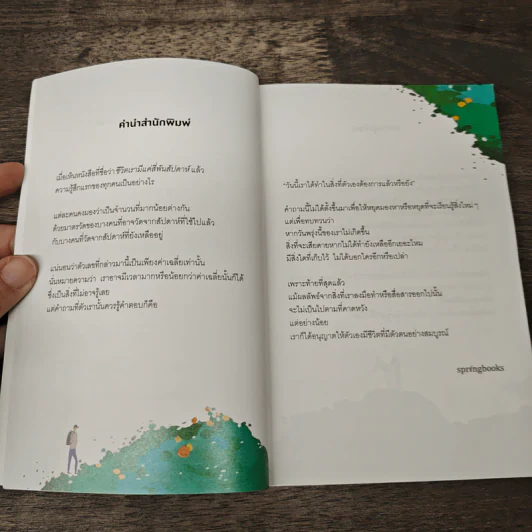 คำนำสำนักพิมพ์
เมื่อเห็นหนังสือที่ชื่อว่า ชีวิตเรามีแค่สี่พันสัปดาห์ แล้ว
ความรู้สึกแรกของทุกคนเป็นอย่างไร
แต่ละคนคงมองว่าเป็นจำนวนที่มากน้อยต่างกัน
ด้วยมาตรวัดของบางคนที่อาจวัดจากสัปดาห์ที่ใช้ไปแล้ว
กับบางคนที่วัดจากสัปดาห์ที่ยังเหลืออยู่
แน่นอนว่าตัวเลขที่กล่าวมานี้เป็นเพียงค่าเฉลี่ยเท่านั้น
นั่นหมายความว่า เราอาจมีเวลามากหรือน้อยกว่าค่าเฉลี่ยนั้นก็ได้
ซึ่งเป็นสิ่งที่ไม่อาจรู้เลย
แต่คำถามที่ตัวเรานั้นควรรู้คำตอบก็คือ
"วันนี้เราได้ทำในสิ่งที่ตัวเองต้องการแล้วหรือยัง"
คำถามนี้ไม่ได้ตั้งขึ้นมาเพื่อให้หยุดมองหาหรือหยุดที่จะเรียนรู้สิ่งใหม่ ๆ
แต่เพื่อทบทวนว่า
หากวันพรุ่งนี้ของเราไม่เกิดขึ้น
สิ่งที่จะเสียดายหากไม่ได้ทำยังเหลืออีกเยอะไหม
มีสิ่งใดที่เก็บไว้ ไม่ได้บอกใครอีกหรือเปล่า
เพราะท้ายที่สุดแล้ว
แม้ผลลัพธ์จากสิ่งที่เราลงมือทำหรือสื่อสารออกไปนั้น
จะไม่เป็นไปตามที่คาดหวัง
แต่อย่างน้อย
เราก็ได้อนุญาตให้ตัวเองมีชีวิตที่มีตัวตนอย่างสมบูรณ์
springbooks